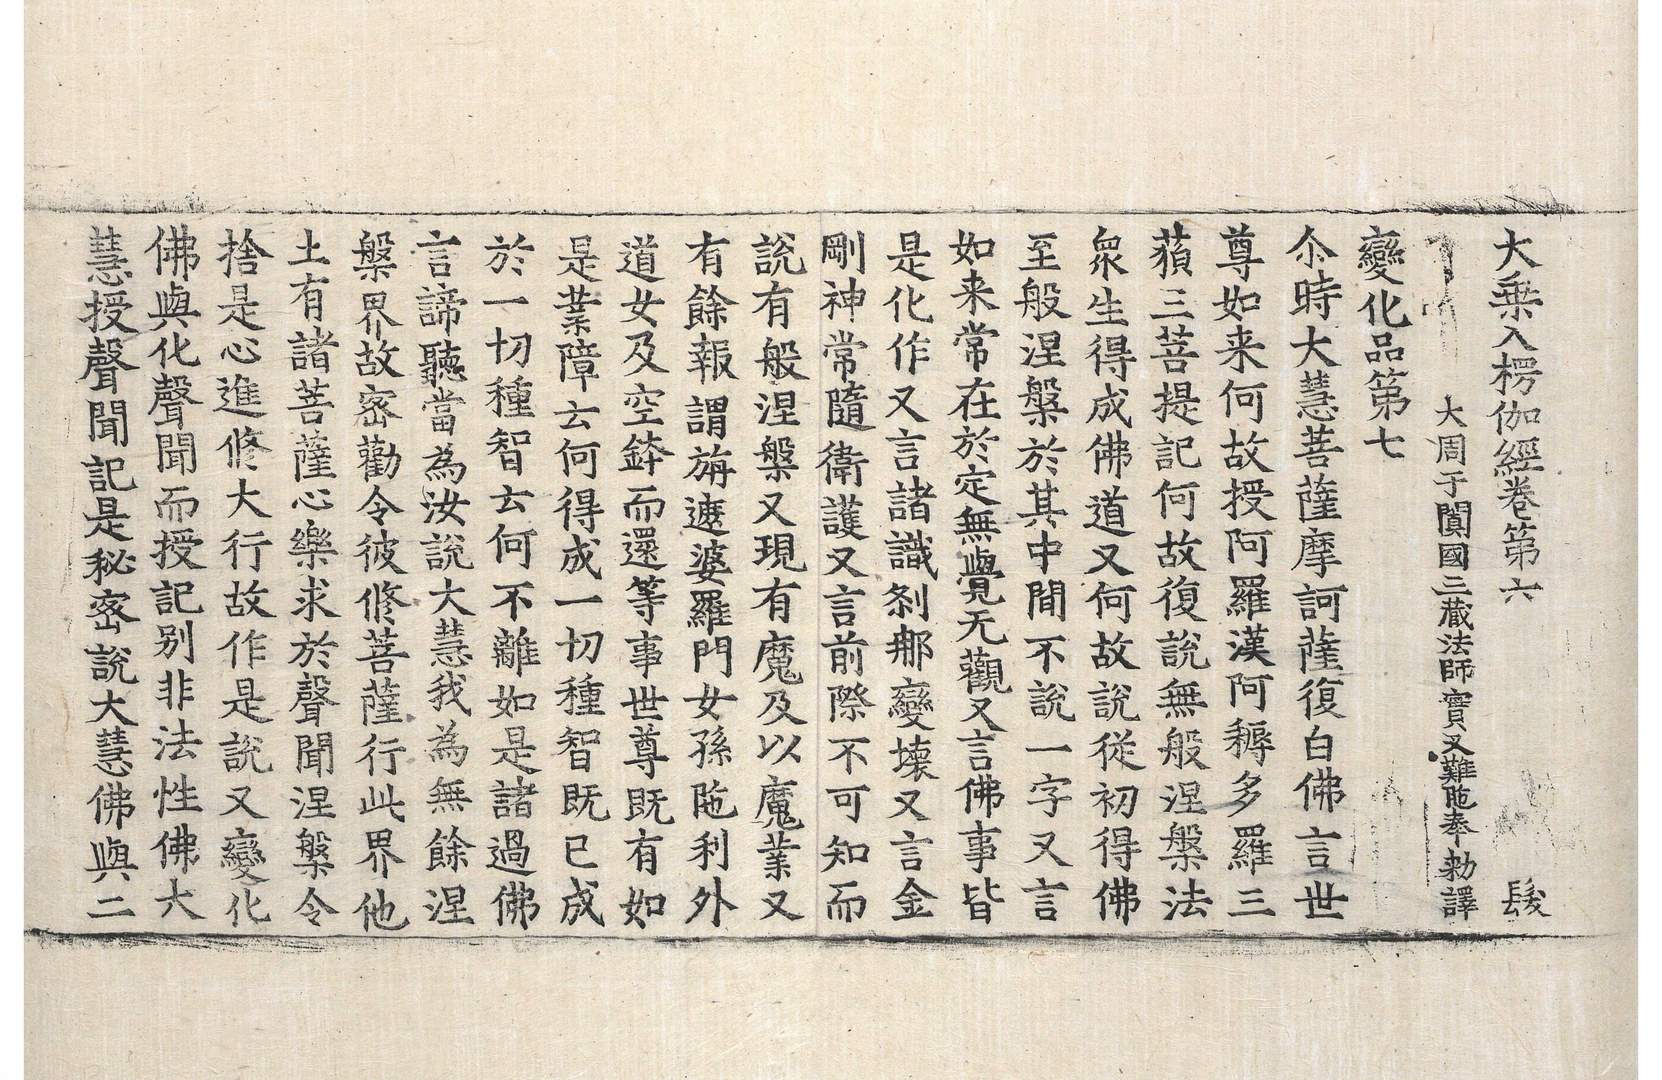 大乗入楞伽經卷第六 髮
大周于闐國三藏法師實叉難陁奉勅譯
變化品第七
尒時大慧菩薩摩訶薩復白佛言世
尊如来何故授阿羅漢阿耨多羅三
藐三菩提記何故復說無般涅槃法
衆生得成佛道又何故說従初得佛
至般涅槃於其中間不說一字又言
如来常在於定無覺无觀又言佛事皆
是化作又言諸識刹那變壞又言金
剛神常隨衛護又言前際不可知而
說有般涅槃又現有魔及以魔業又
有餘報謂旃遮婆羅門女孫陁利外
道女及空鉢而還等事世尊既有如
是業障云何得成一切種智既已成
於一切種智云何不離如是諸過佛
言諦聽當為汝說大慧我為無餘涅
槃界故密勸令彼修菩薩行此界他
土有諸菩薩心樂求於聲聞涅槃令
捨是心進修大行故作是說又變化
佛與化聲聞而授記別非法性佛大
慧授聲聞記是秘密說大慧佛與二